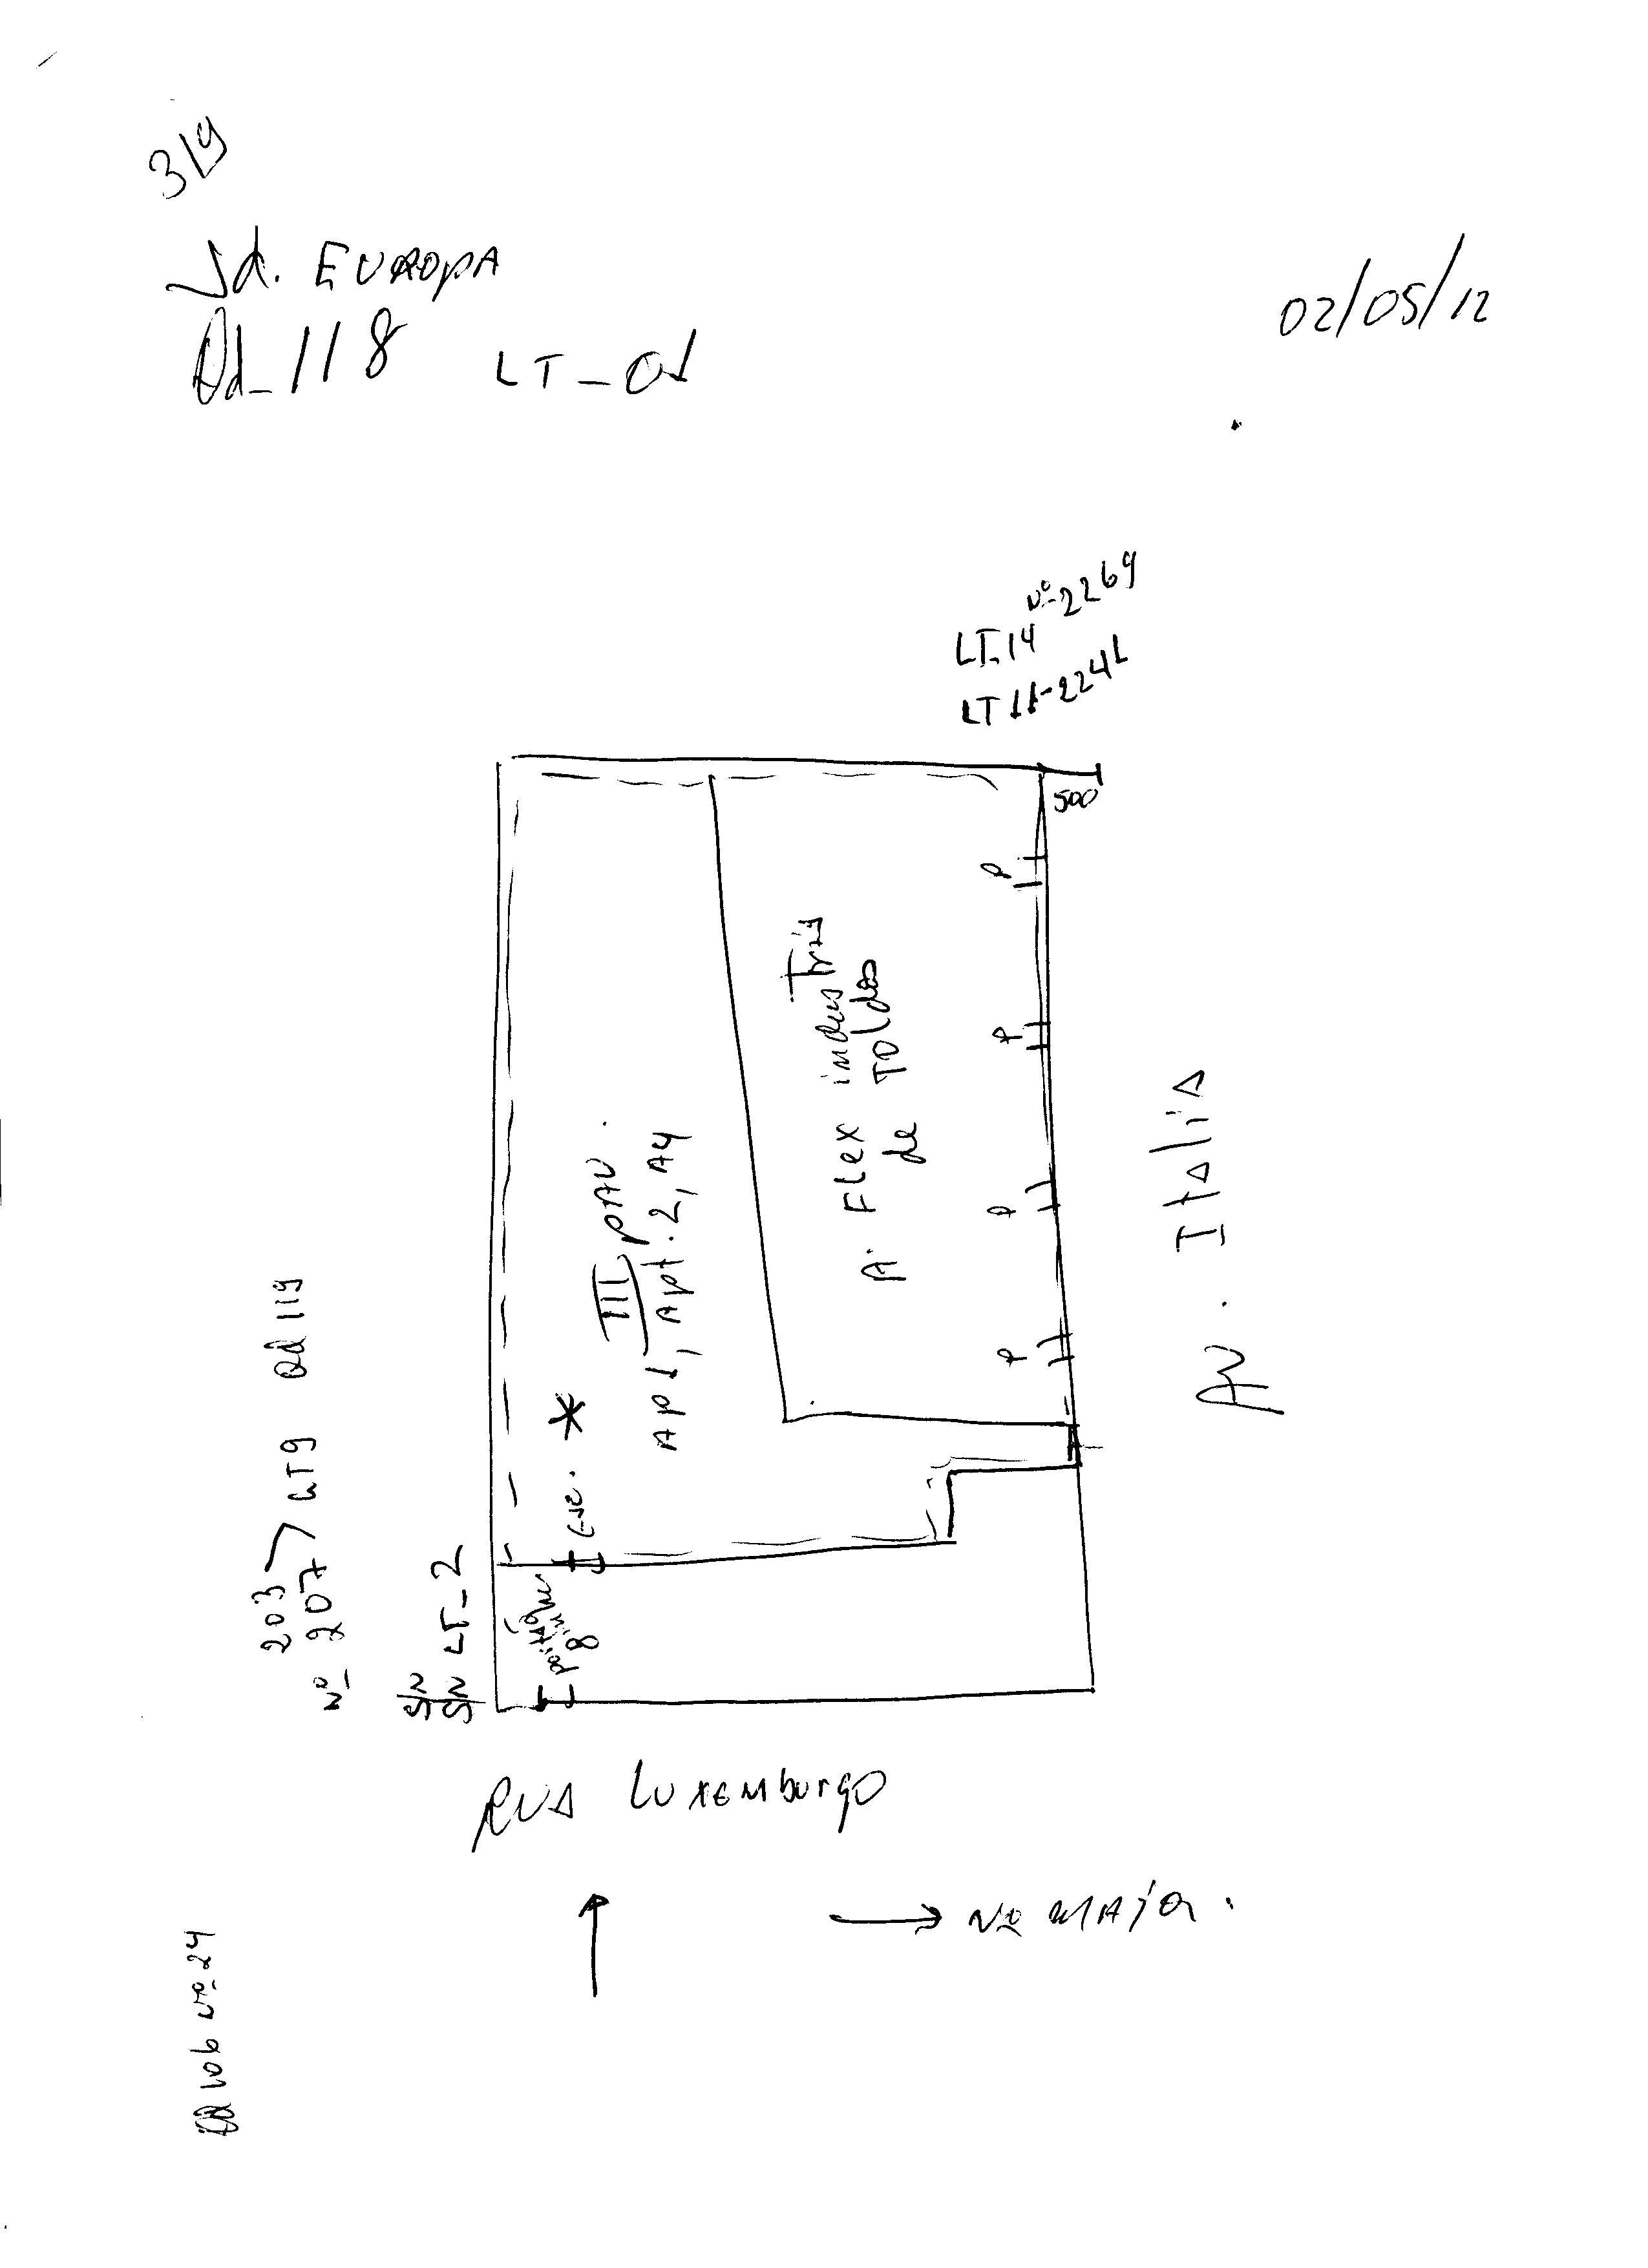 319
Jd. EUROPA
Qd_118 LT_01
02/05/12
Nº-2269
LT.14
LT 11-2241
500
P
P
P
P
A. FLEX indus Tria
de TOLDOS
III pAV.
Ap 1, Apt. 2, A4
Esc. *
8
Av. Italia
203
Nº 207 > LT9 Qd 119
SN
SN LT_2
RUA Luxemburgo
→ Nº MAJOR.
106 Nº-24